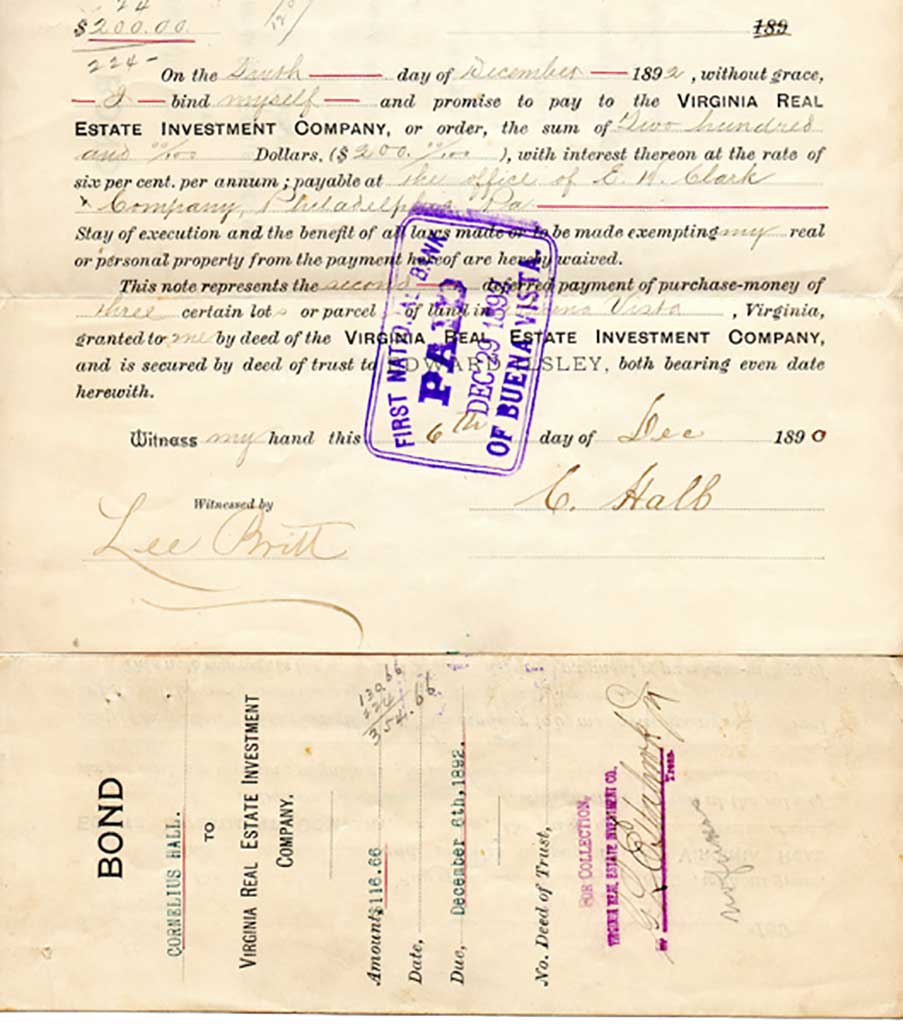 24
$200.00.
189
224-
On the Sixth day of December 1892, without grace,
I bind myself and promise to pay to the VIRGINIA REAL
ESTATE INVESTMENT COMPANY, or order, the sum of Two hundred
and 00/100 Dollars, ($200. 00/100), with interest thereon at the rate of
six per cent. per annum; payable at the office of E. W. Clark
& Company, Philadelphia, Pa
Stay of execution and the benefit of all laws made or to be made exempting my real
or personal property from the payment hereof are hereby waived.
This note represents the second deferred payment of purchase-money of
three certain lots or parcels of land in Buena Vista, Virginia,
granted to me by deed of the VIRGINIA REAL ESTATE INVESTMENT COMPANY,
and is secured by deed of trust to EDWARD ILSLEY, both bearing even date
herewith.
FIRST NATIONAL BANK
PAID
DEC 29 189
OF BUENA VISTA
Witness my hand this 6th day of Dec 1890
C. Hall
Witnessed by
Lee Britt
BOND
CORNELIUS HALL.
TO
VIRGINIA REAL ESTATE INVESTMENT
COMPANY.
130.66
224
354.66
Amount $116.66
Date,
Due, December 6th, 1892.
No. Deed of Trust,
FOR COLLECTION,
VIRGINIA REAL ESTATE INVESTMENT CO.
BY Treas.